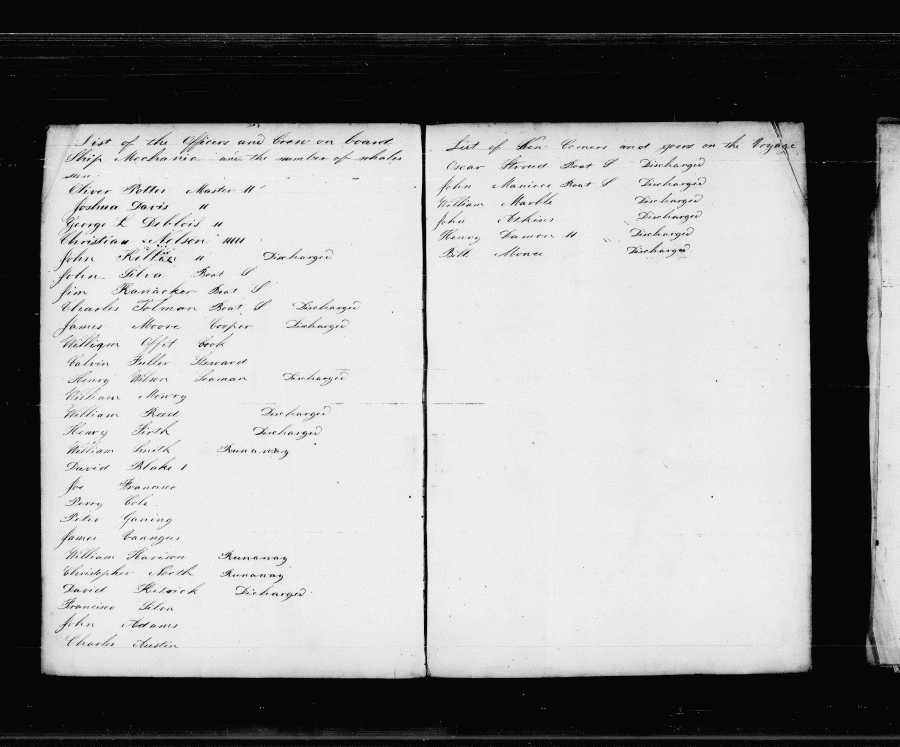 List of the Officers and Crew on board
Ship Mechanic and the number of whales
seen
Oliver Potter Master 11
Joshua Davis 11
George L Deblois 11
Christian Nelson 11111
John Killian 11 Discharged
John Silva Boat S
Jim Kanacker Boat S
Charles Tolman Boat S Discharged
James Moore Cooper Discharged
William Offit Cook
Calvin Fuller Steward
Henry Wilson Seaman Discharged
William Mowry
William Reed Discharged
Henry Firth Discharged
William Smith Runaway
David Blake 1
Joe Francisco
Perry Cole
Peter Goning
James
William Harison Runaway
Christopher North Runaway
David Discharged
Francisco Silva
John Adams
Charles Austin
List of Comers and goers on the Voyage
Oscar Stroud Boat S Discharged
John Maniece Boat S Discharged
William Marble Discharged
John Atkins Discharged
Henry Damon 11 Discharged
Bill Discharged